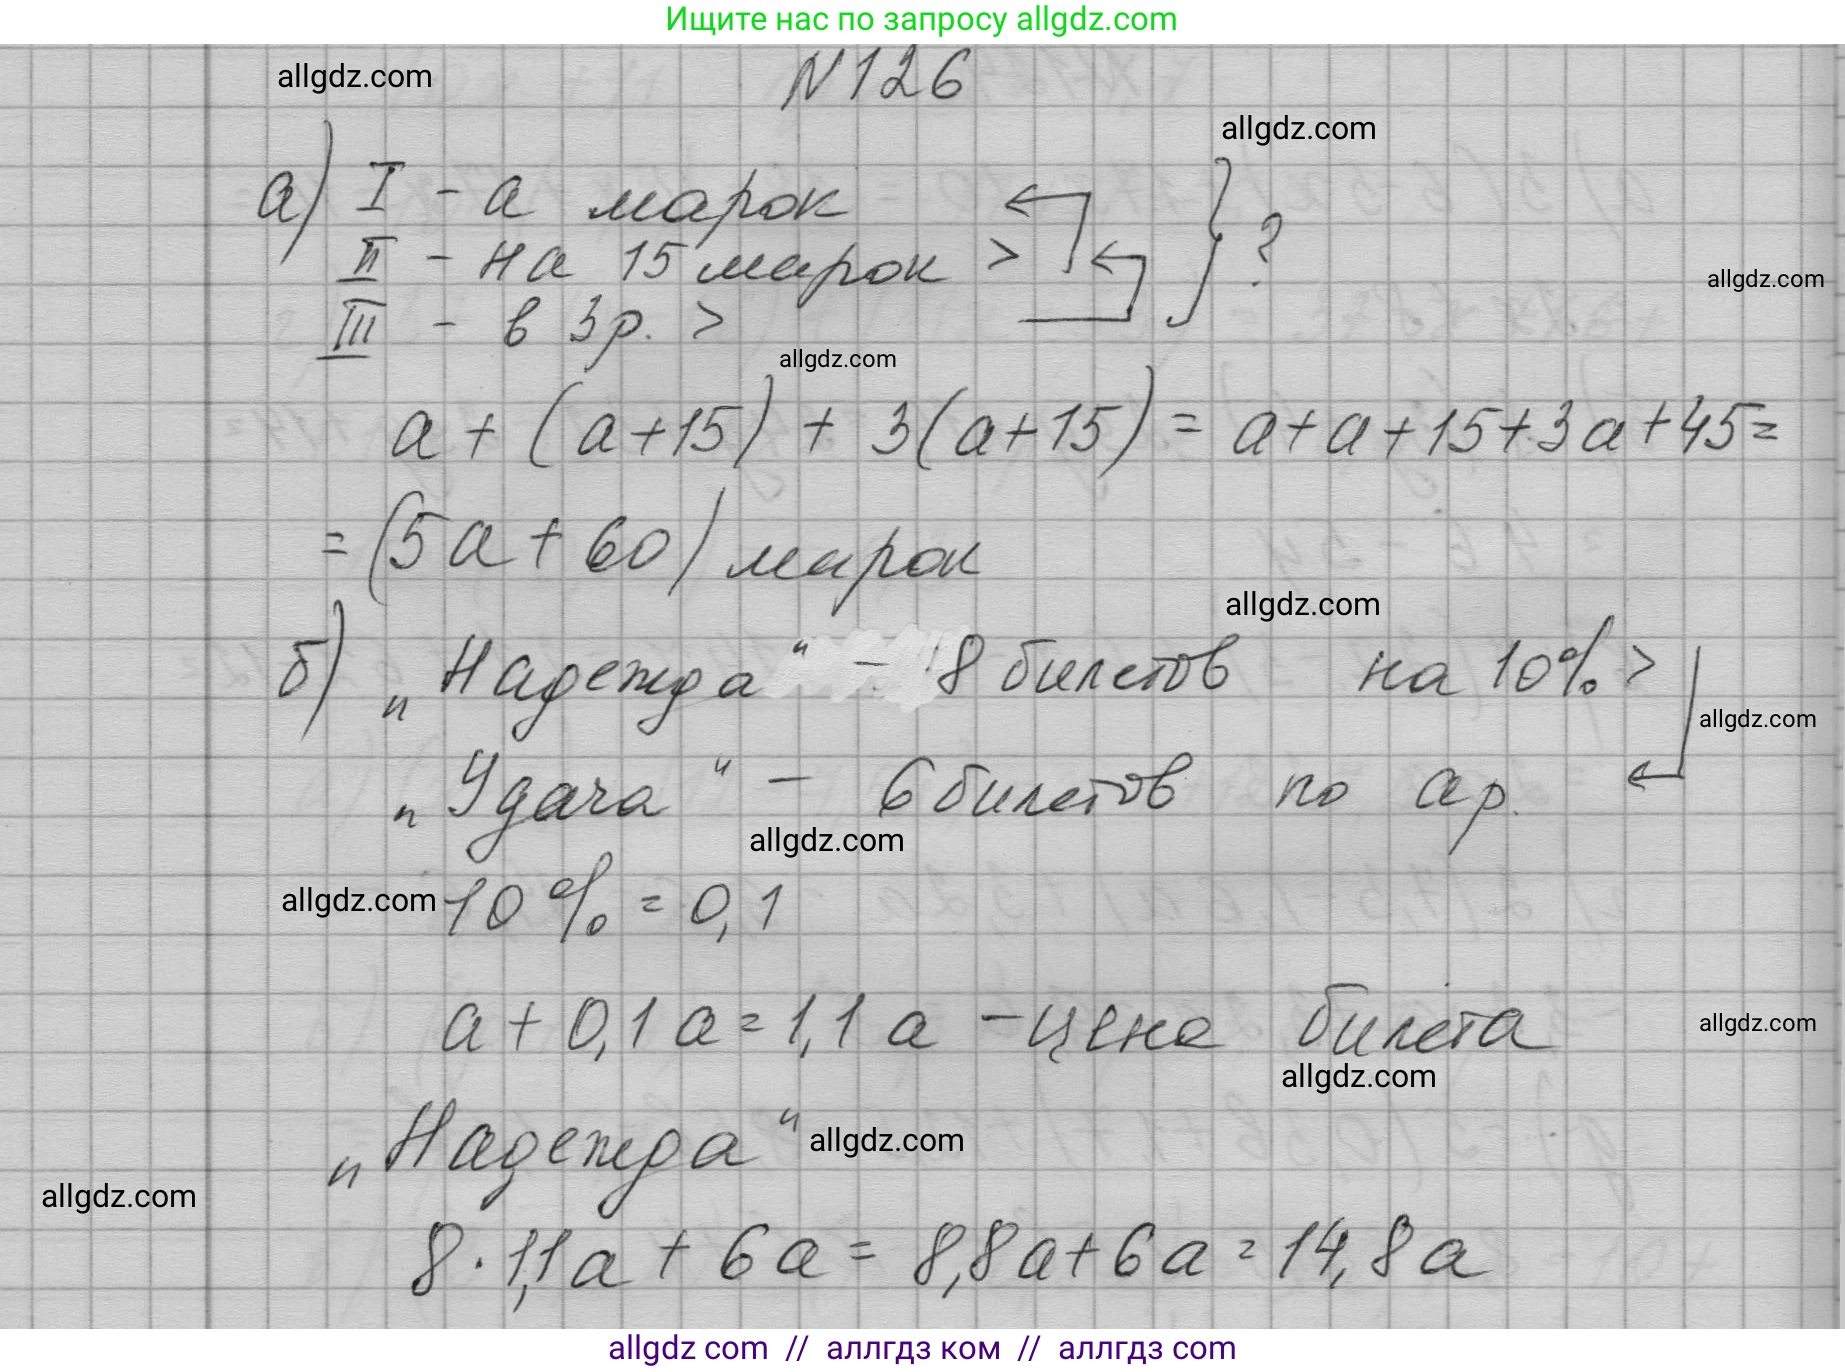 Ищите нас по запросу allgdz.com
N 126
allgdz.com
allgdz.com
а) I - а марок
II - на 15 марок > } ?
allgdz.com
III - в 3 р. >
allgdz.com
a + (a+15) + 3(a+15) = a+a+15+3a+45=
= (5a+60) марок
allgdz.com
б) „Надежда" - 8 билетов на 10% >
allgdz.com
„Удача" - 6 билетов по а р.
allgdz.com
allgdz.com 10% = 0,1
a + 0,1a = 1,1a - цена билета
allgdz.com
allgdz.com
„Надежда" allgdz.com
allgdz.com
8 · 1,1a + 6a = 8,8a + 6a = 14,8a
allgdz com // аллгдз ком // аллгдз com